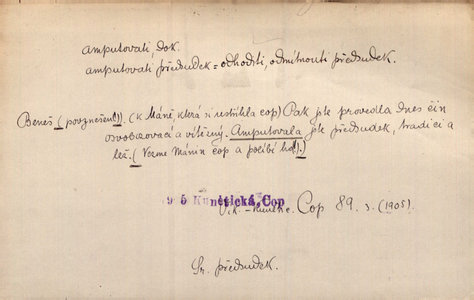 amputovati, dok.
amputovati předsudek = odhoditi, odmítnouti předsudek.
Beneš (povznešeně). (k Máně která si ustřihla cop) Pak jste provedla dnes čin
osvobozovací a vítězný. Amputovala jste předsudek, tradici a
lež. (Vezme Mánin cop a políbí ho.)
Kunětická, Cop
Vik. - Kunětic. Cop 89. 3. (1905).
Sr. předsudek.